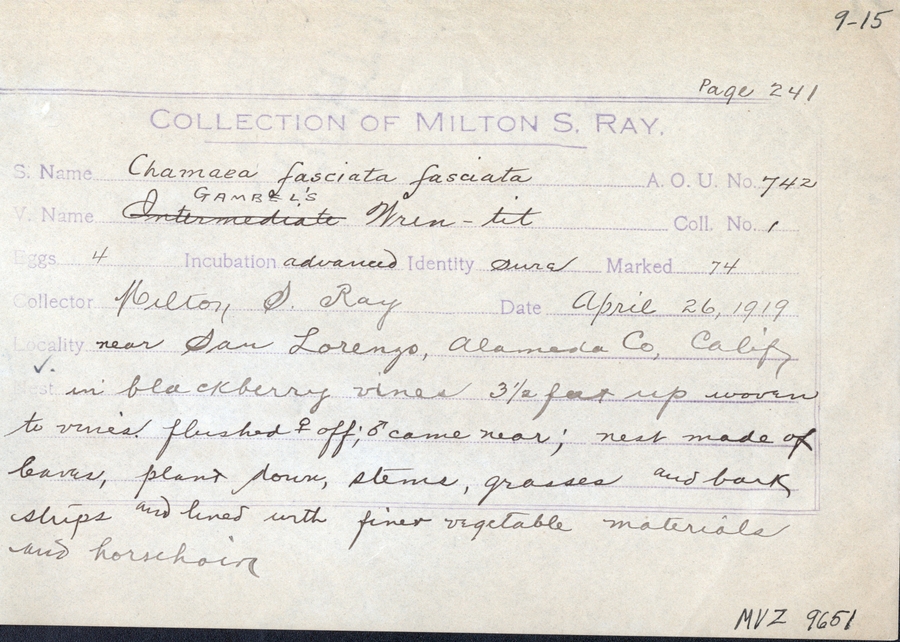 9-15
Page 241
COLLECTION OF MILTON S. RAY.
S. Name Chamaea fasciata fasciata A. O. U. No. 742
GAMBEL'S
V. Name Intermediate Wren-tit Coll. No. 1
Eggs 4 Incubation advanced Identity sure Marked 74
Collector Milton S. Ray Date April 26, 1919
Locality near San Lorenzo, Alameda Co, Calif
✓.
Nest in blackberry vines 3½ feet up woven
to vines. flushed ♀ off; ♂ came near; nest made of
leaves, plant down, stems, grasses and bark
strips and lined with finer vegetable materials
and horsehair
MVZ 9651